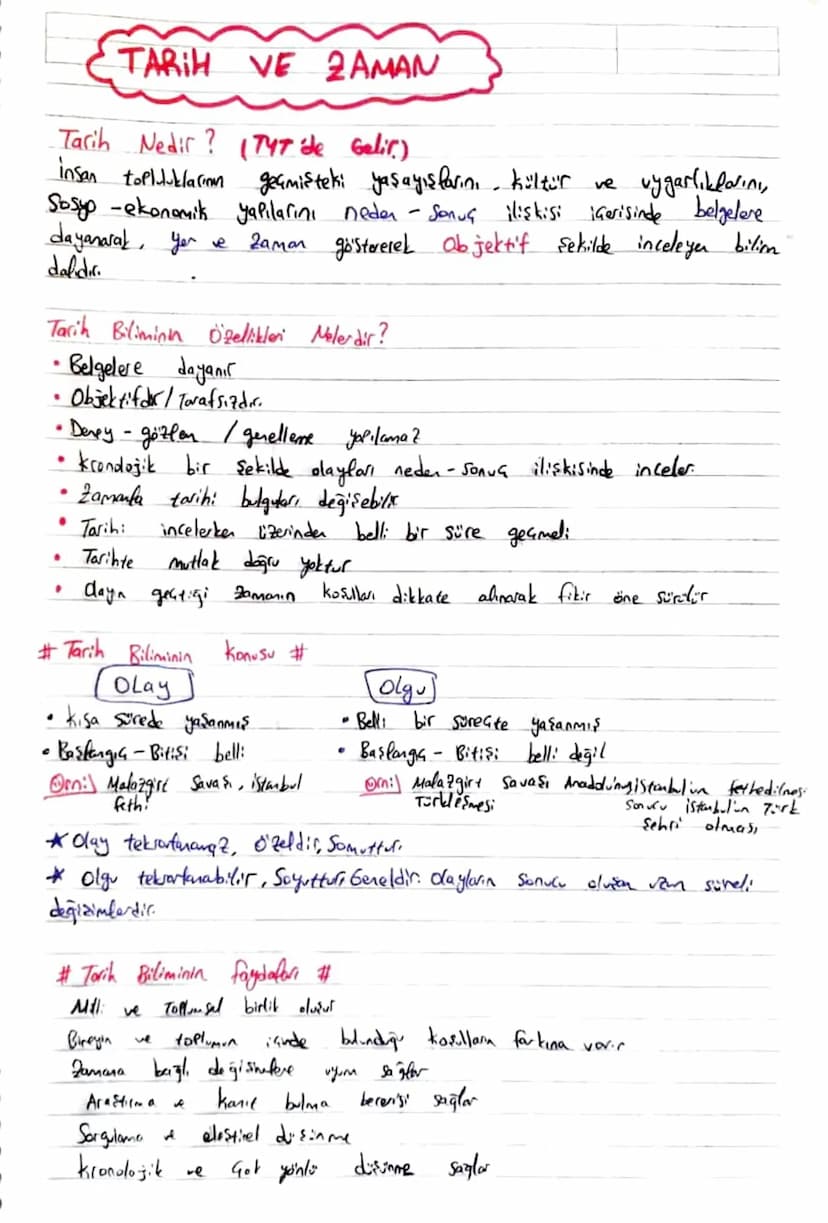 TARİH VE ZAMAN
Tarih Nedir? (TYT'de Gelir.)
İnsan topluluklarının geçmişteki yaşayışlarını, kültür ve uygarlıklarını,
Sosyo-ekonomik yapılarını neden-sonuç ilişkisi içerisinde belgelere
dayanarak, yer ve zaman göstererek Objektif şekilde inceleyen bilim
dalıdır.
Tarih Biliminin Özellikleri Nelerdir?
• Belgelere dayanır
• Objektifdir/Tarafsızdır.
• Deney-gözlem / genelleme yapılamaz
• Kronolojik bir şekilde olayları neden-sonuç ilişkisinde inceler.
• Zamanla tarihi bulguları değişebilir
• Tarihi incelerken üzerinden belli bir süre geçmeli
• Tarihte mutlak doğru yoktur
• Olayın geçtiği zamanın koşulları dikkate alınarak fikir öne sürülür
# Tarih Biliminin Konusu #
OLAY Olgu
• Kısa sürede yaşanmış • Belli bir süreçte yaşanmış
• Başlangıç-Bitişi belli • Başlangıç-Bitişi belli değil
Örn:) Malazgirt Savaşı, İstanbul Örn:) Malazgirt Savaşı Anadolu'nun İstanbul'un fethedilmesi
fethi Türkleşmesi sonucu İstanbul'un Türk
şehri olması
★ Olay tekrarlanamaz, Özeldir, Somuttur.
★ Olgu tekrarlanabilir, Soyuttur, Geneldir. Olayların sonucu oluşan uzun süreli
değişimlerdir.
# Tarih Biliminin faydaları #
Milli ve Toplumsal birlik oluşur
Bireyin ve toplumun içinde bulunduğu koşulların farkına varır
Zamana bağlı değişimlere uyum sağlar
Araştırma ve kanıt bulma becerisi sağlar
Sorgulama ve eleştirel düşünme
Kronolojik ve Çok yönlü düşünme sağlar